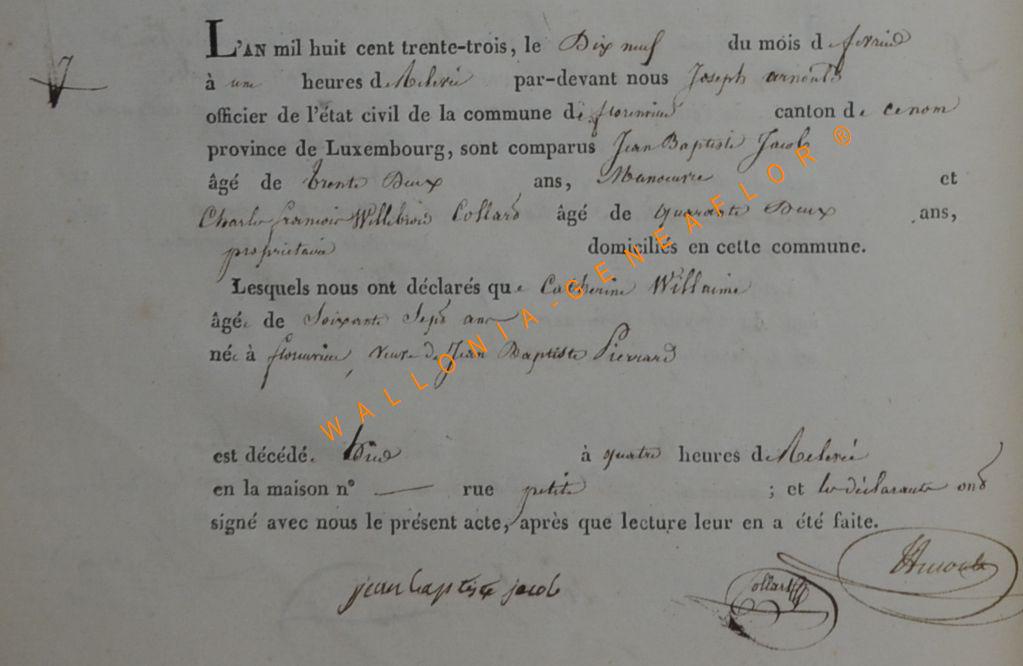 L'AN mil huit cent trente-trois, le Dix neuf du mois de fevrier
à une heures de Relevée par-devant nous Joseph arnould
officier de l'état civil de la commune de florenville canton de
province de Luxembourg, sont comparus Jean Baptiste Jacob
âgé de trente Deux ans, Manoeuvre et
Charles francois Willebrod Collard âgé de quarante Deux ans,
proprietaire domiciliés en cette commune.
Lesquels nous ont déclarés que Catherine Willaime
âgée de Soixante Sept ans
née à florenville, veuve de Jean Baptiste Pierrard
est décédée à quatre heures de Relevée
en la maison n° — rue petite ; et les déclarants ont
signé avec nous le présent acte, après que lecture leur en a été faite.
jean baptiste jacob
Collard
JArnould
WALLONIA-GENEAFLOR ®